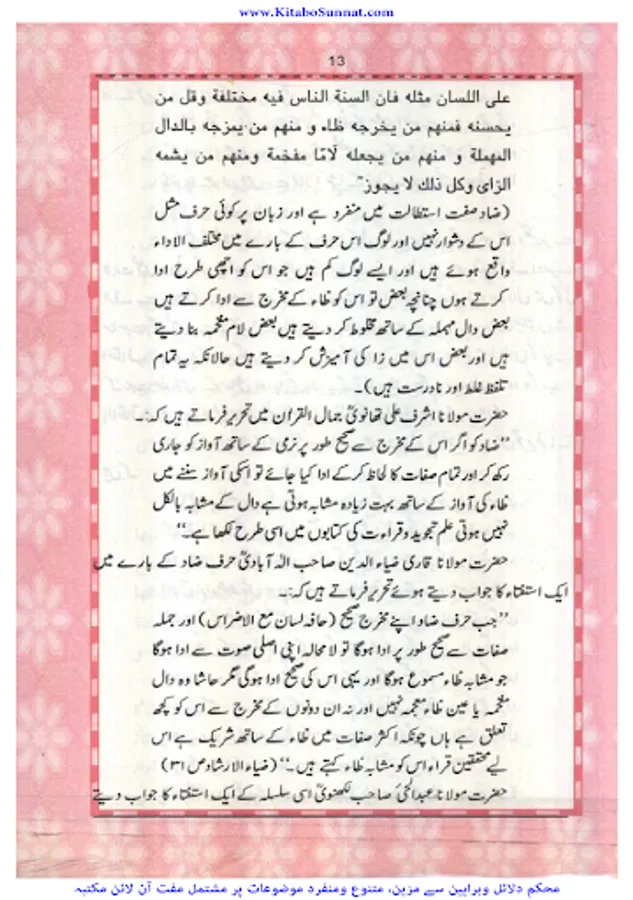 www.KitaboSunnat.com
13
على اللسان مثله فان السنة الناس فيه مختلفة وقل من
يحسنه فمنهم من يخرجه ظاء و منهم من يمزجه بالدال
المهملة و منهم من يجعله لامًا مفخمة ومنهم من يشمه
الزاى وكل ذلك لا يجوز"
(ضاد صفت استطالت میں منفرد ہے اور زبان پر کوئی حرف مثل
اس کے دشوار نہیں اور لوگ اس حرف کے بارے میں مختلف الاداء
واقع ہوئے ہیں اور ایسے لوگ کم ہیں جو اس کو اچھی طرح ادا
کرتے ہوں چنانچہ بعض تو اس کو ظاء کے مخرج سے ادا کرتے ہیں
بعض دال مہملہ کے ساتھ مخلوط کر دیتے ہیں بعض لام مفخمہ بنا دیتے
ہیں اور بعض اس میں زا کی آمیزش کر دیتے ہیں حالانکہ یہ تمام
تلفظ غلط اور نادرست ہیں)۔
حضرت مولانا اشرف علی تھانویؒ جمال القران میں تحریر فرماتے ہیں کہ:۔
"ضاد کو اگر اس کے مخرج سے صحیح طور پر نرمی کے ساتھ آواز کو جاری
رکھ کر اور تمام صفات کا لحاظ کرکے ادا کیا جائے تو اسکی آواز سننے میں
ظاء کی آواز کے ساتھ بہت زیادہ مشابہ ہوتی ہے دال کے مشابہ بالکل
نہیں ہوتی علم تجوید وقراءت کی کتابوں میں اسی طرح لکھا ہے۔"
حضرت مولانا قاری ضیاء الدین صاحب الٰہ آبادیؒ حرف ضاد کے بارے میں
ایک استفتاء کا جواب دیتے ہوئے تحریر فرماتے ہیں کہ:۔
"جب حرف ضاد اپنے مخرج صحیح (حافہ لسان مع الاضراس) اور جملہ
صفات سے صحیح طور پر ادا ہوگا تو لا محالہ اپنی اصلی صوت سے ادا ہوگا
جو مشابہ ظاء مسموع ہوگا اور یہی اس کی صحیح ادا ہوگی مگر حاشا وہ دال
مفخمہ یا عین ظاء معجمہ نہیں اور نہ ان دونوں کے مخرج سے اس کو کچھ
تعلق ہے ہاں چونکہ اکثر صفات میں ظاء کے ساتھ شریک ہے اس
لیے محققین قراء اس کو مشابہ ظاء کہتے ہیں۔" (ضیاء الارشاد ص ۳۱)
حضرت مولانا عبدالحیؒ صاحب لکھنویؒ اسی سلسلہ کے ایک استفتاء کا جواب دیتے
محکم دلائل وبراہین سے مزین، متنوع ومنفرد موضوعات پر مشتمل مفت آن لائن مکتبہ